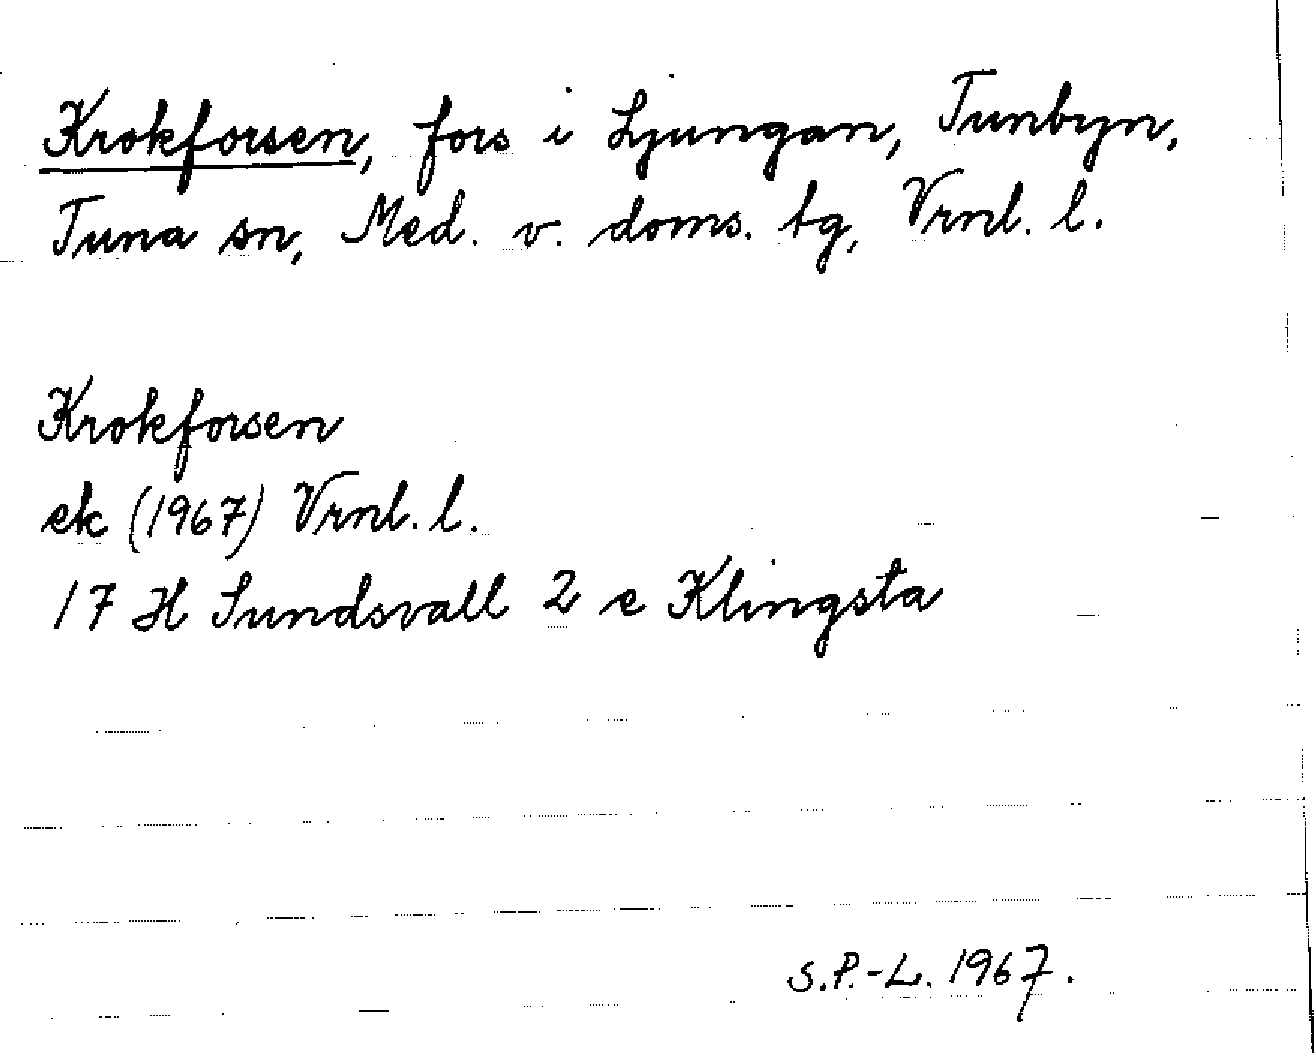 Krokforsen, fors i Ljungan, Tunbyn,
Tuna sn, Med. v. doms. tg, Vrnl. l.
Krokforsen
ek (1967) Vrnl. l.
17 H Sundsvall 2 e Klingsta
S.P.-L. 1967.